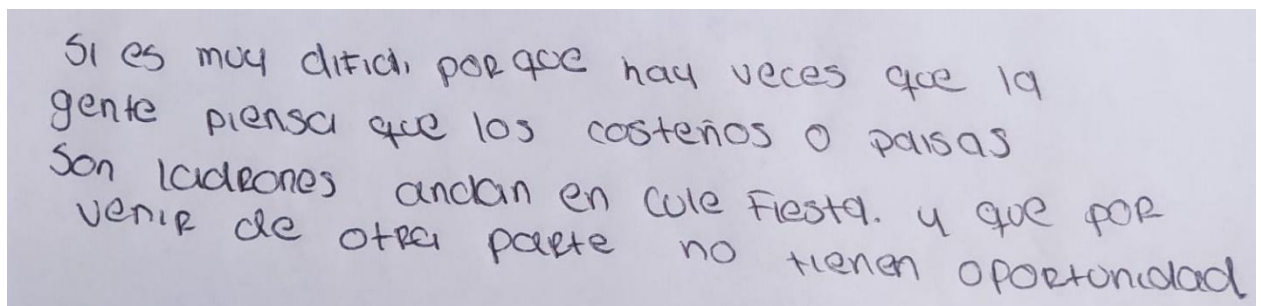 Si es muy dificil, por que hay veces que la
gente piensa que los costeños o paisas
Son ladrones andan en cule Fiesta. y que por
venir de otra parte no tienen oportunidad